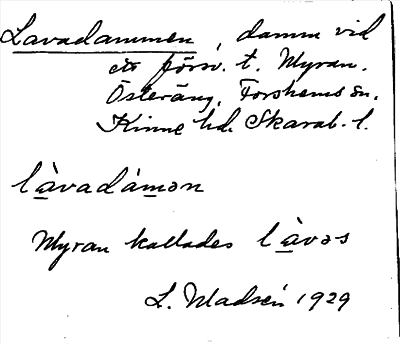 Lavadammen, damm vid
ett försv. t. Myran.
Österäng, Forshems sn.
Kinne hd. Skarab. l.
làvadámən
Myran kallades làvəs
L. Madsén 1929